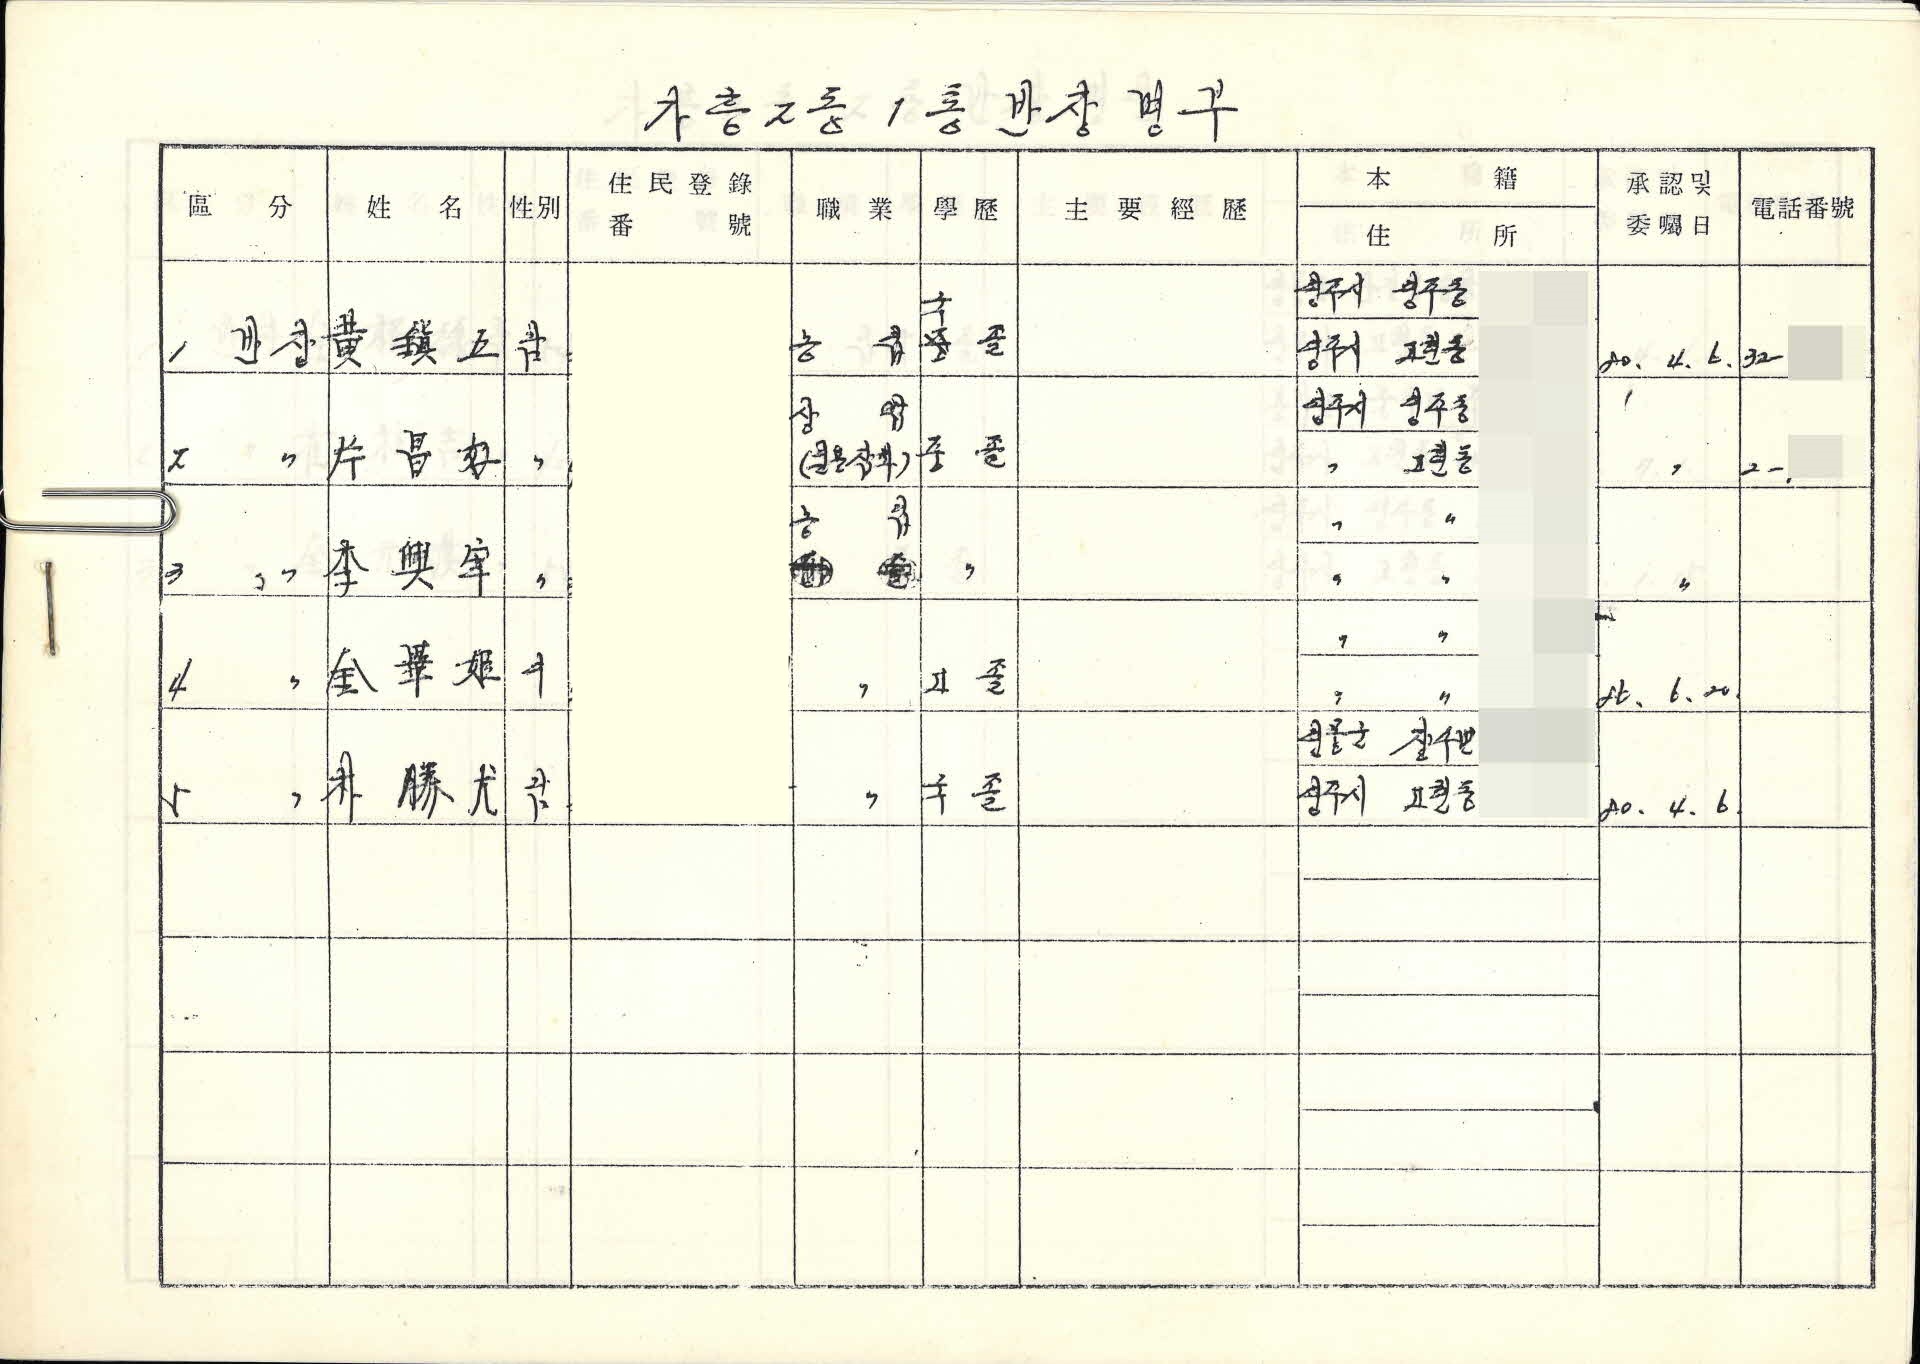 가흥2동 1통 반장 명부
區 分 姓 名 性別 住民登錄番號 職 業 學 歷 主 要 經 歷 本 籍 住 所 承認및委囑日 電話番號
1 반장 黃鎭五 남 농업 국졸 영주시 영주동
영주시 고현동 80. 4. 6. 32-
2 〃 昌 〃 상업 중졸 영주시 영주동
〃 고현동 〃 2-
3 〃 李興宰 〃 농업 〃 〃 〃
〃 〃 〃
4 〃 金畢姬 여 〃 고졸 〃 〃
〃 〃 86. 6. 20.
5 〃 朴勝尤 남 〃 국졸
영주시 고현동 80. 4. 6.